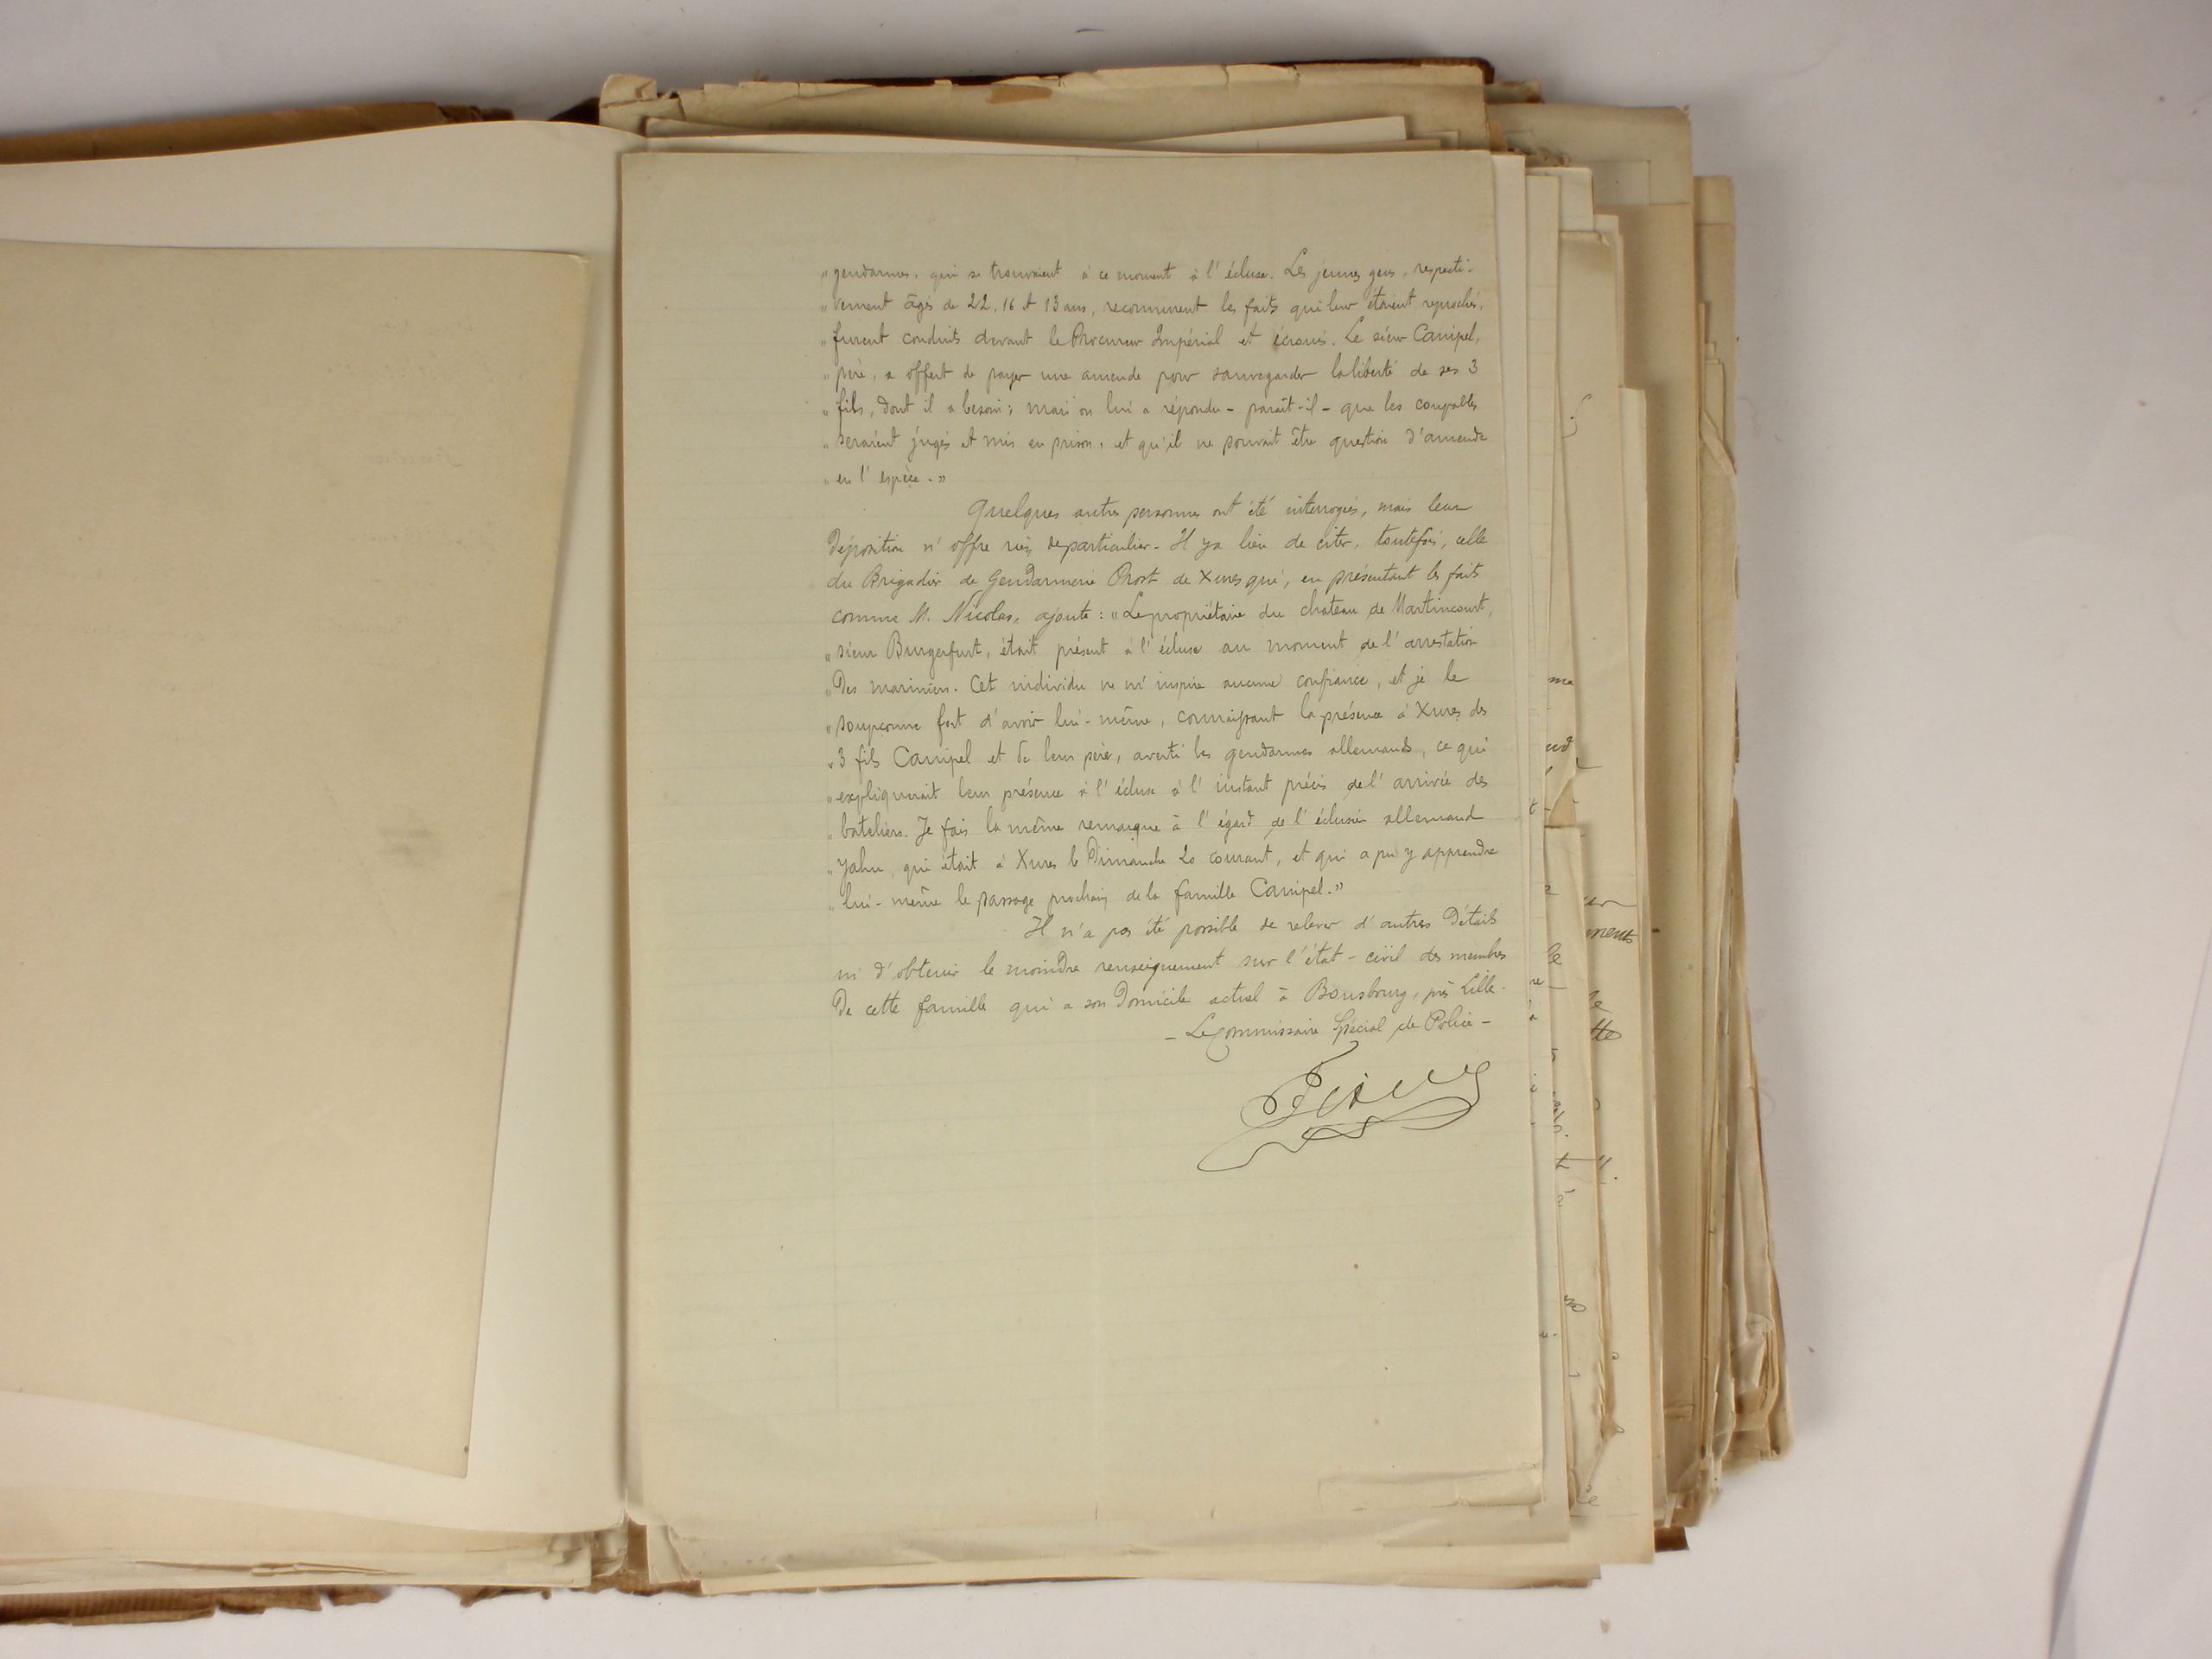 " gendarmes, qui se trouvaient à ce moment à l'écluse. Les jeunes gens, respecti-
" vement âgés de 22, 16 et 13 ans, reconnurent les faits qui leur étaient reprochés,
" furent conduits devant le Procureur Impérial et écroués. Le sieur Canipel,
" père, a offert de payer une amende pour sauvegarder la liberté de ses 3
" fils, dont il a besoin; mais on lui a répondu - paraît-il - que les coupables
" seraient jugés et mis en prison, et qu'il ne pouvait être question d'amende
" en l'espèce."
Quelques autres personnes ont été interrogées, mais leur
déposition n'offre rien de particulier. Il y a lieu de citer, toutefois, celle
du Brigadier de Gendarmerie Prost de Xures qui, en présentant les faits
comme M. Nicolas, ajoute : "Le propriétaire du chateau de Martincourt,
" sieur Burgerfurt, était présent à l'écluse au moment de l'arrestation
" des mariniers. Cet individu ne m'inspire aucune confiance, et je le
" soupçonne fort d'avoir lui-même, connaissant la présence à Xures des
" 3 fils Canipel et de leur père, averti les gendarmes allemands, ce qui
" expliquerait leur présence à l'écluse à l'instant précis de l'arrivée des
" bateliers. Je fais la même remarque à l'égard de l'éclusier allemand
" Jahn, qui était à Xures le Dimanche 20 courant, et qui a pu y apprendre
" lui-même le passage prochain de la famille Canipel."
Il n'a pas été possible de relever d'autres détails
ni d'obtenir le moindre renseignement sur l'état-civil des membres
de cette famille qui a son domicile actuel à Bousbourg, près Lille.
- Le Commissaire Spécial de Police -